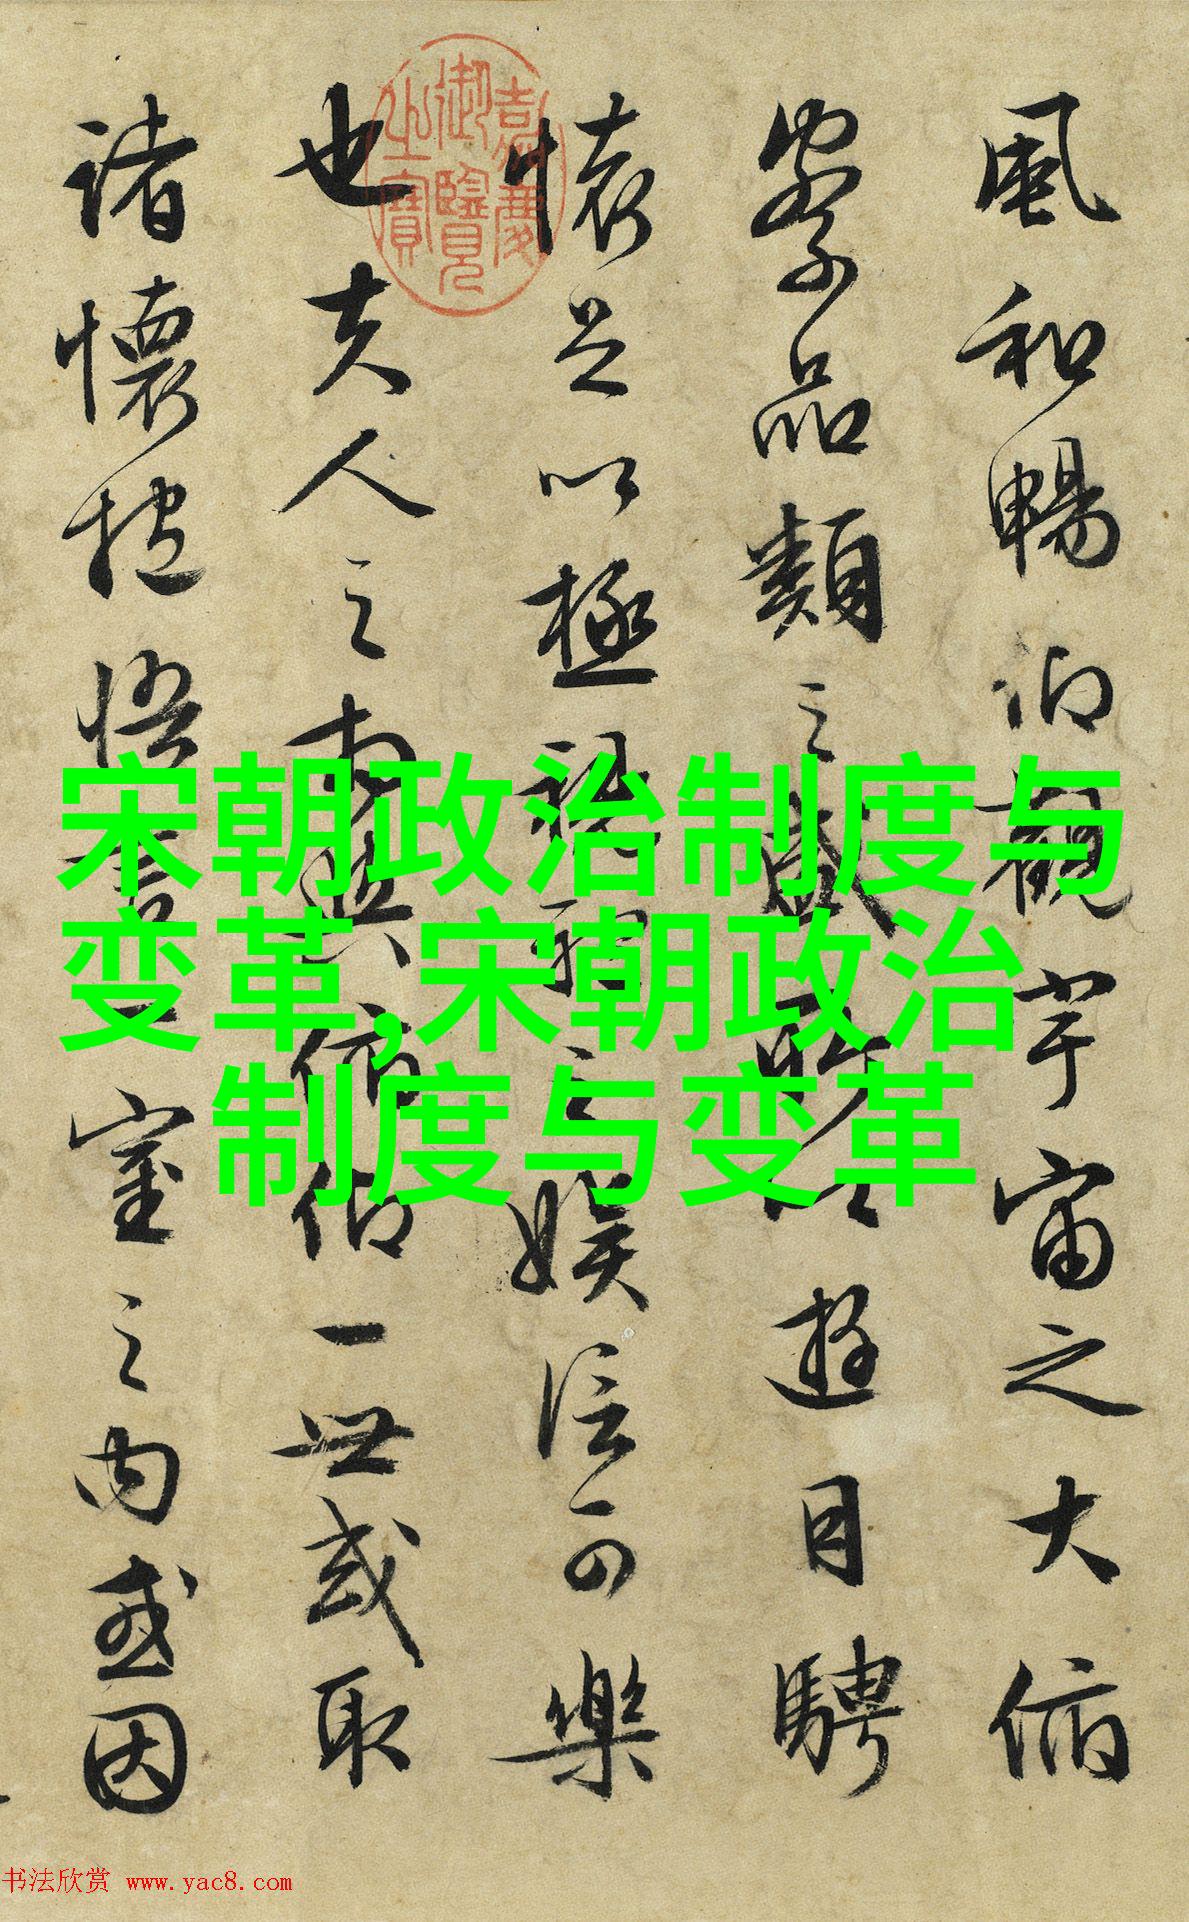 風和暢仰觀宇宙之大俯
察品類之盛所以遊目騁
懷足以極視聽之娛信可樂
也夫人之相與俯仰一世或取
諸懷抱悟言一室之内或因
嘉慶
御覽
之寶
宋朝政治制度与
变革,宋朝政治
制度与变革
书法欣赏 www.yac8.com